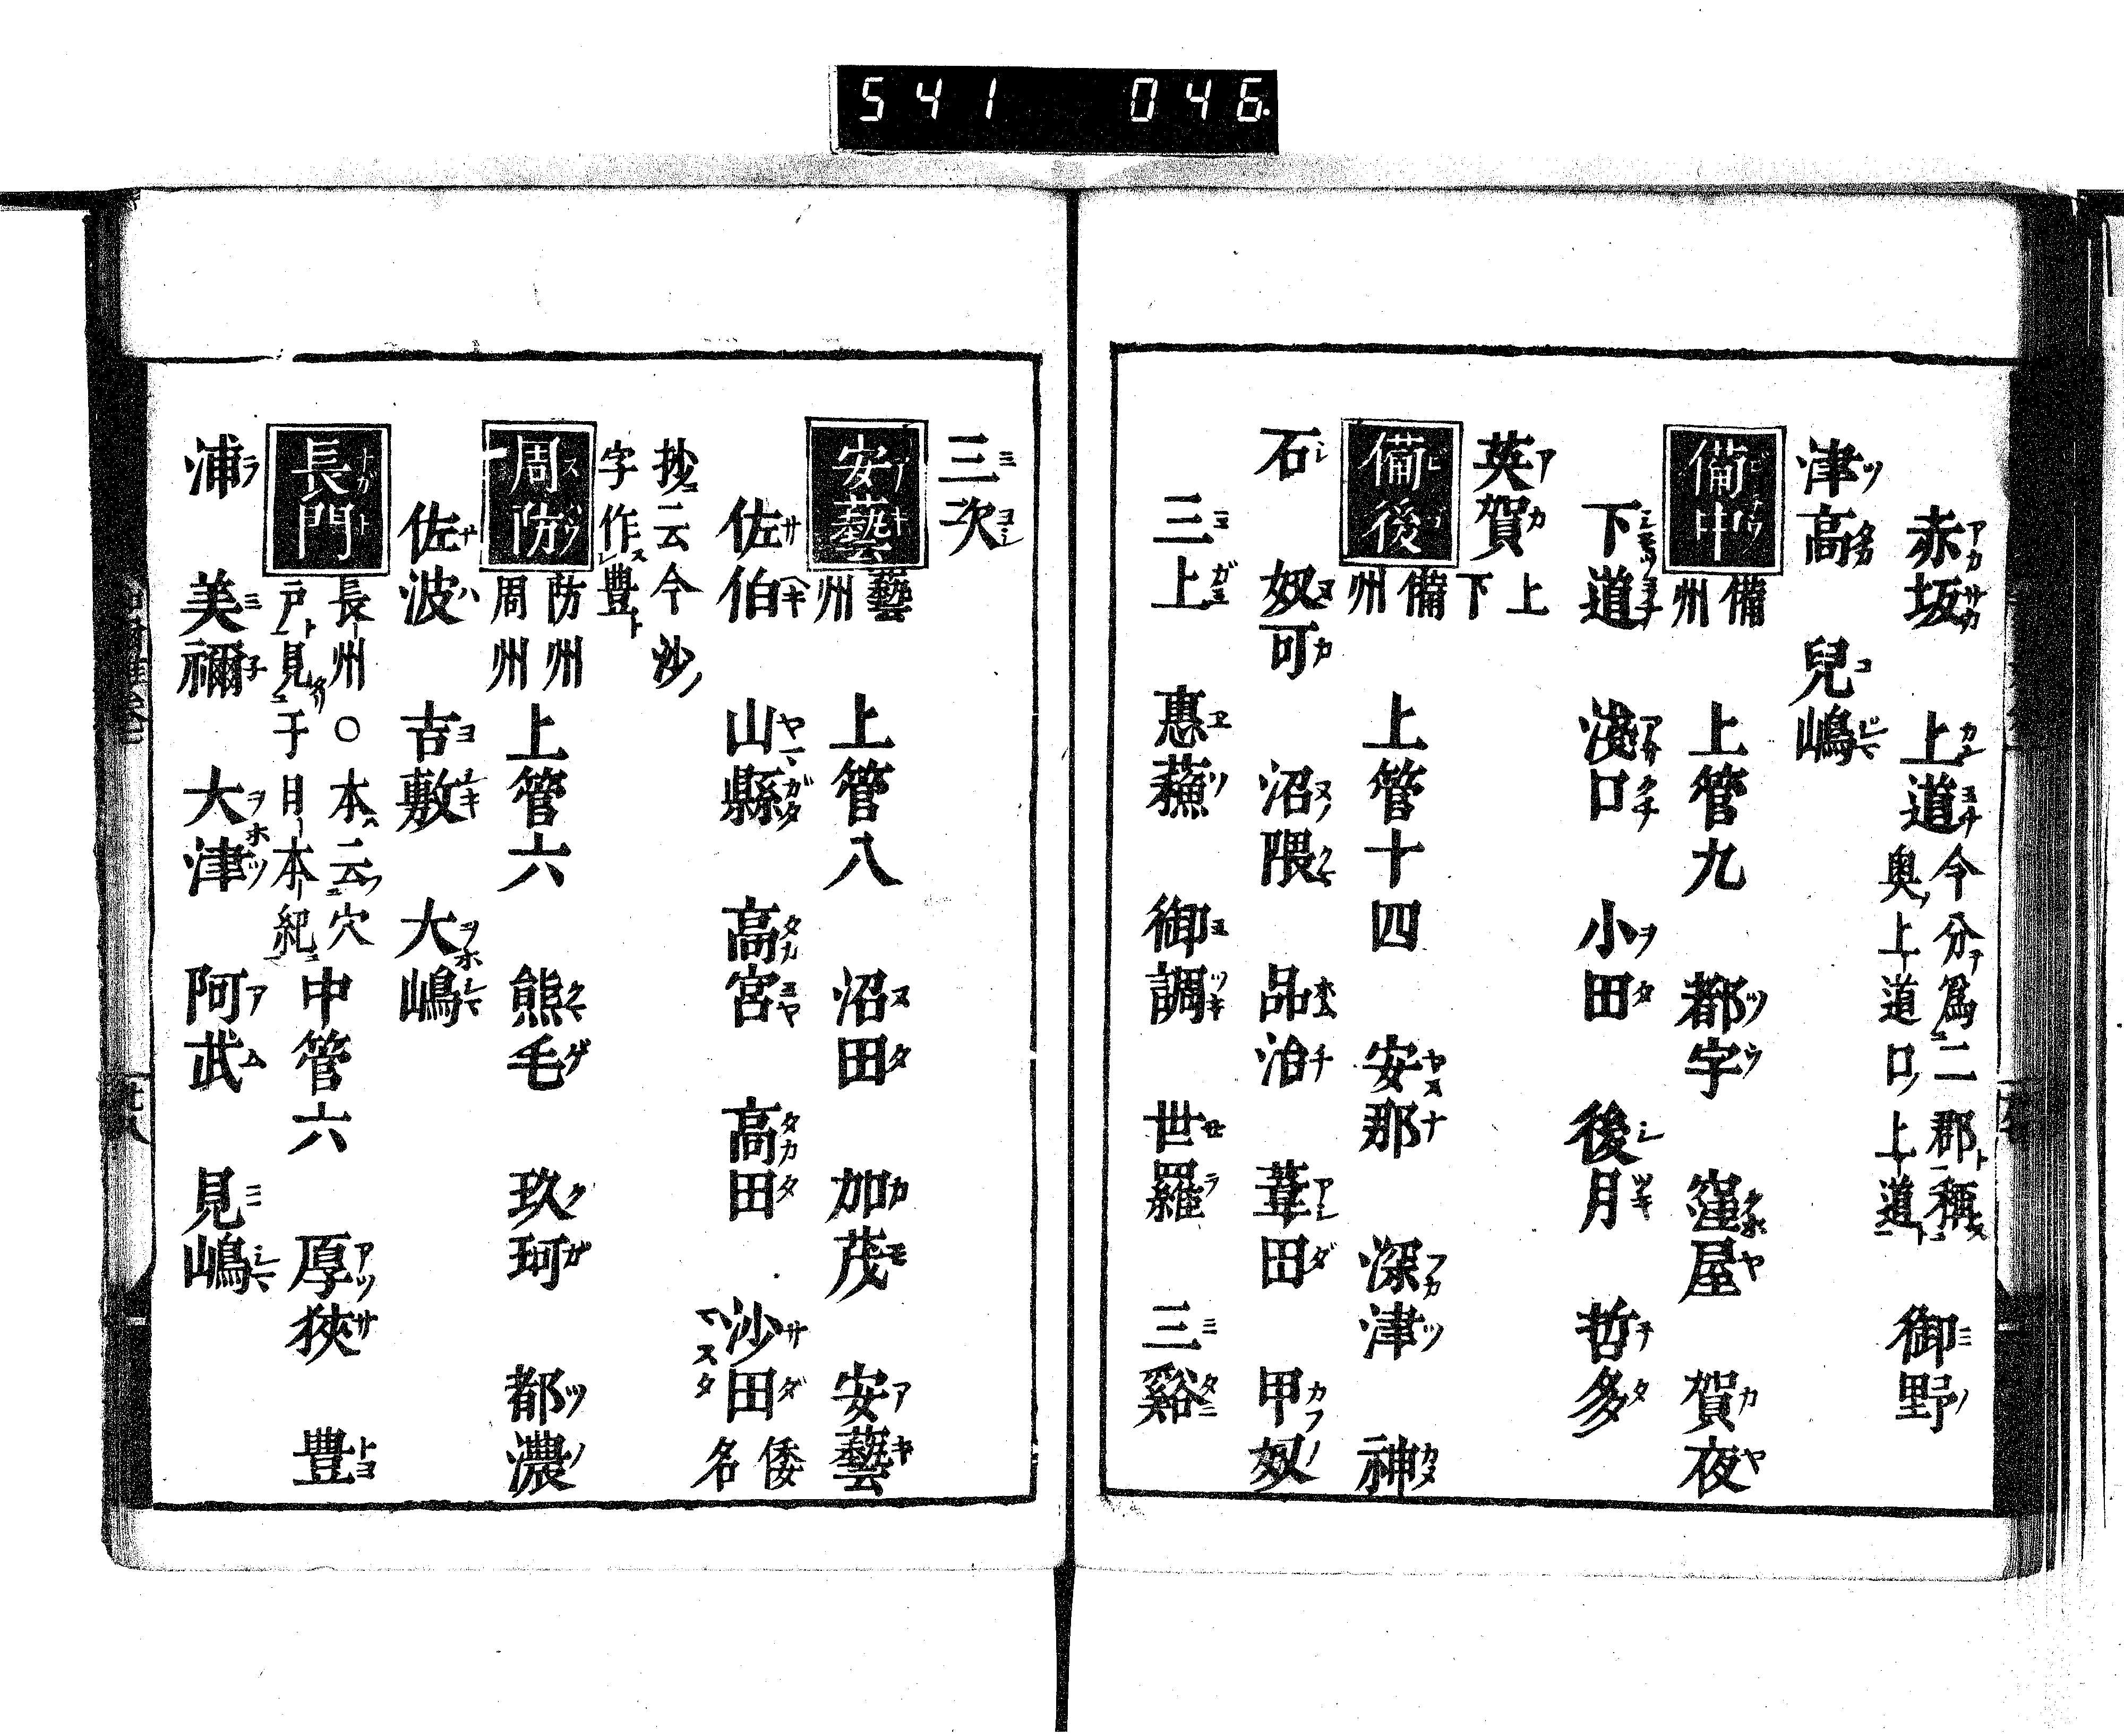 541 046
赤坂 上道 今分爲二郡稱 奥上道口上道 御野
津高 兒嶋
備中 備州 上管九 都宇 窪屋 賀夜
下道 淺口 小田 後月 哲多
英賀 上下
備後 備州 上管十四 安那 深津 神
石 奴可 沼隈 品治 葦田 甲奴
三上 惠蘓 御調 世羅 三谿
三次
安藝 藝州 上管八 沼田 加茂 安藝
佐伯 山縣 高宮 高田 沙田 倭名
抄云今沙
字作豐
周防 防州 周州 上管六 熊毛 玖珂 都濃
佐波 吉敷 大嶋
長門 長州○本云穴 戸見于日本紀 中管六 厚狹 豊
浦 美禰 大津 阿武 見嶋